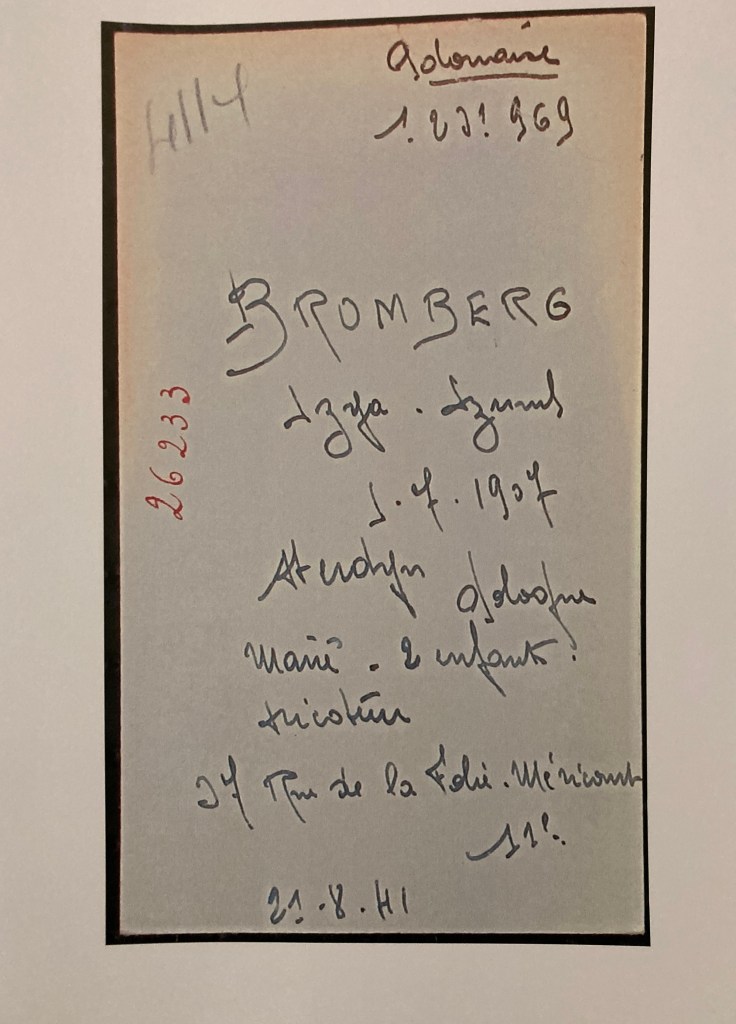 Polonaise
1.231 969
BROMBERG
Szmul
26233
1.7.1907
Pologne
Marié. 2 enfants.
tricoteur
37 Rue de la Folie-Méricourt
11e.
21.8.41